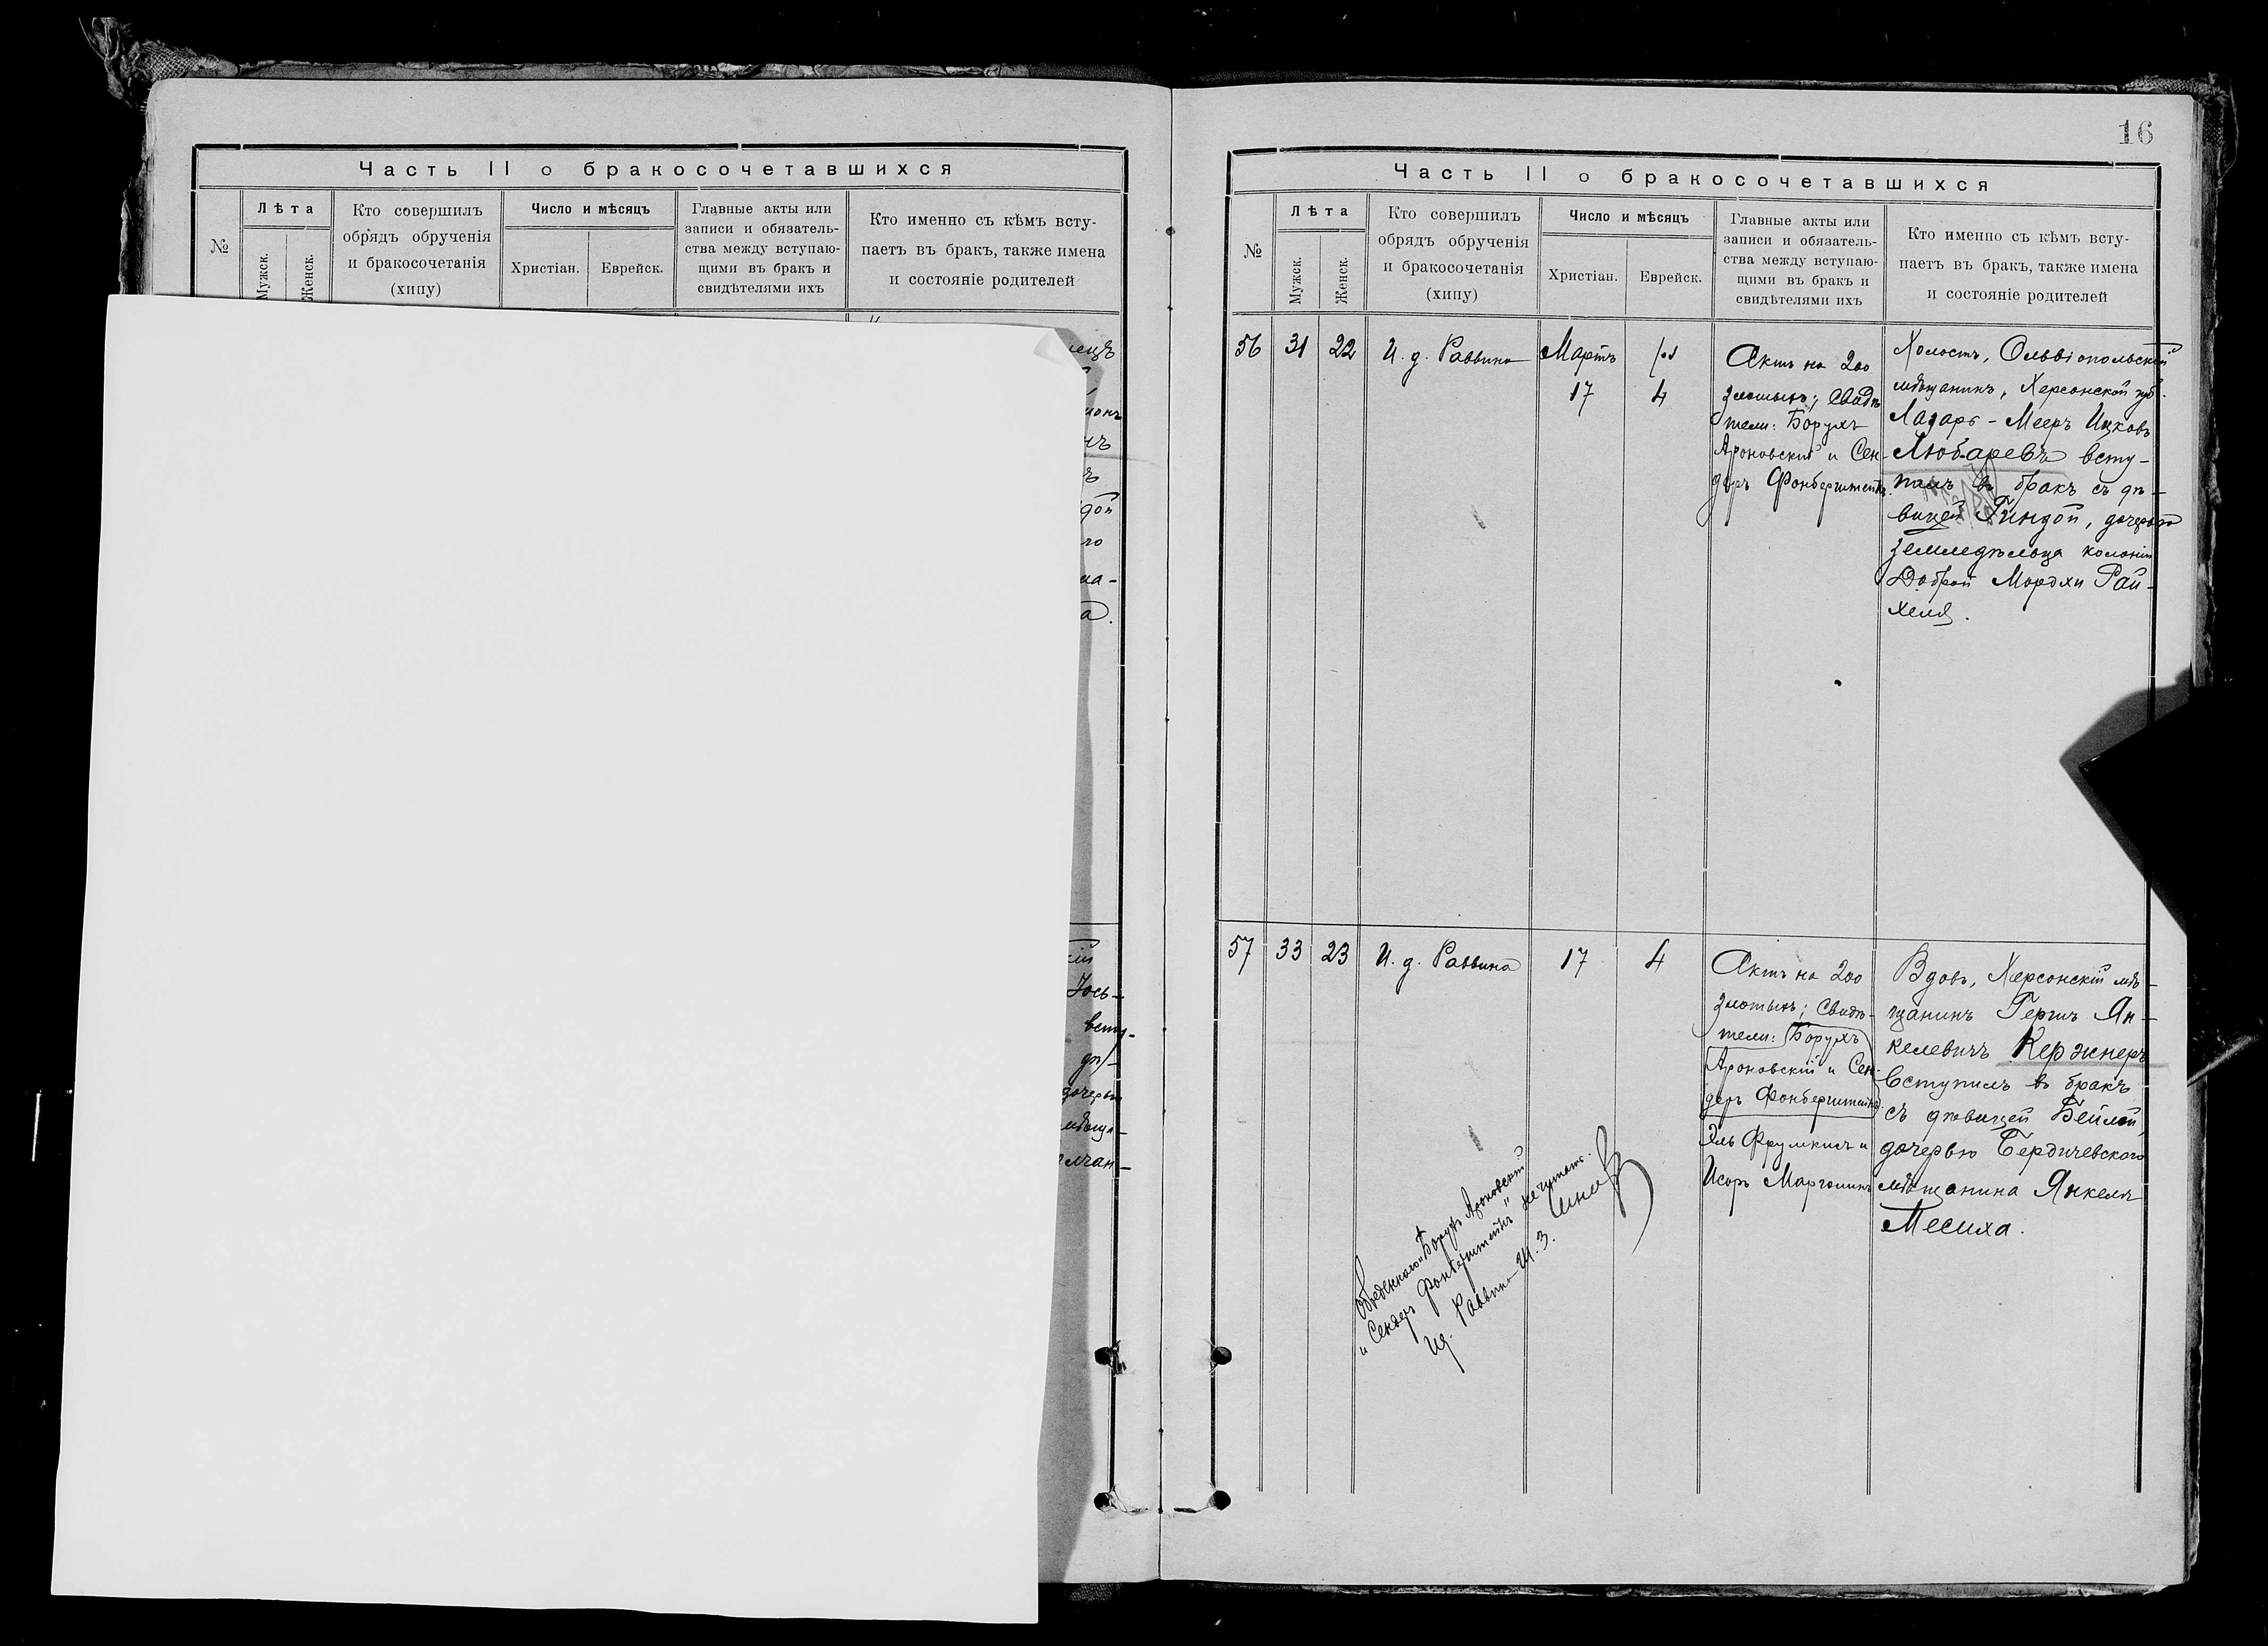 Часть II о бракосочетавшихся
№
Лѣта
Мужск.
Женск.
Кто совершилъ
обрядъ обрученія
и бракосочетанія
(хипу)
Число и мѣсяцъ
Христіан.
Еврейск.
Главные акты или
записи и обязатель-
ства между вступаю-
щими въ бракъ и
свидѣтелями ихъ
Кто именно съ кѣмъ всту-
паетъ въ бракъ, также имена
и состояніе родителей
Іось-
всту-
дочерью
16
Часть II о бракосочетавшихся
№
Лѣта
Мужск.
Женск.
Кто совершилъ
обрядъ обрученія
и бракосочетанія
(хипу)
Число и мѣсяцъ
Христіан.
Еврейск.
Главные акты или
записи и обязатель-
ства между вступаю-
щими въ бракъ и
свидѣтелями ихъ
Кто именно съ кѣмъ всту-
паетъ въ бракъ, также имена
и состояніе родителей
56
31
22
И. д. Раввина
Мартъ
17
4
Актъ на 200
злотыхъ; Свидѣ
тели: Борухъ
Ароновскій и Сен-
деръ Фонберштейнъ.
Холостъ, Ольвіопольскій
мѣщанинъ, Херсонской губ.
Лазарь-Мееръ Ицковъ
Любаревъ всту-
пилъ въ бракъ съ дѣ-
вицей Гиндой, дочерью
земледѣльца колоніи
Доброй Мордхи Рай-
хеля.
57
33
23
И. д. Раввина
17
4
Актъ на 200
злотыхъ; Свидѣ-
тели: Борухъ
Ароновскій и Сен-
деръ Фонберштейнъ
Эль Фрумкинъ и
Исоръ Марголинъ
Вдовъ, Херсонскій мѣ-
щанинъ Гершъ Ян-
келевичъ Кержнеръ
вступилъ въ бракъ
съ дѣвицей Бейлой,
дочерью Бердичевскаго
мѣщанина Янкеля
Месиха.
Обведенного „Борухъ Ароновскій
и Сендеръ Фонберштейнъ" не читать.
Ид. Раввина